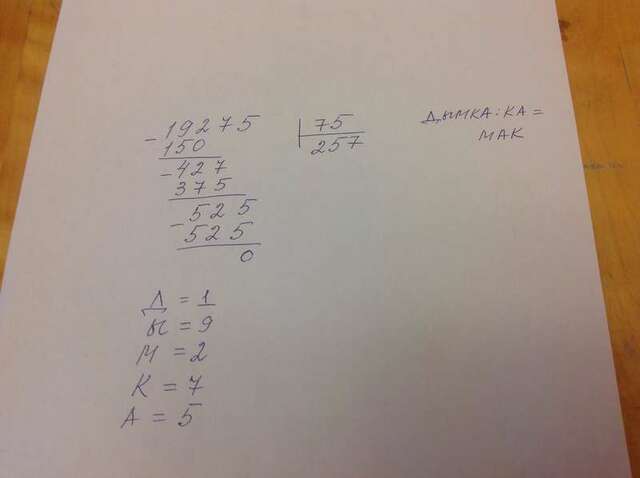 - 19275 | 75
150 257
- 427
375
- 525
525
0
ДЫМКА : КА =
МАК
Д = 1
Ы = 9
М = 2
К = 7
А = 5